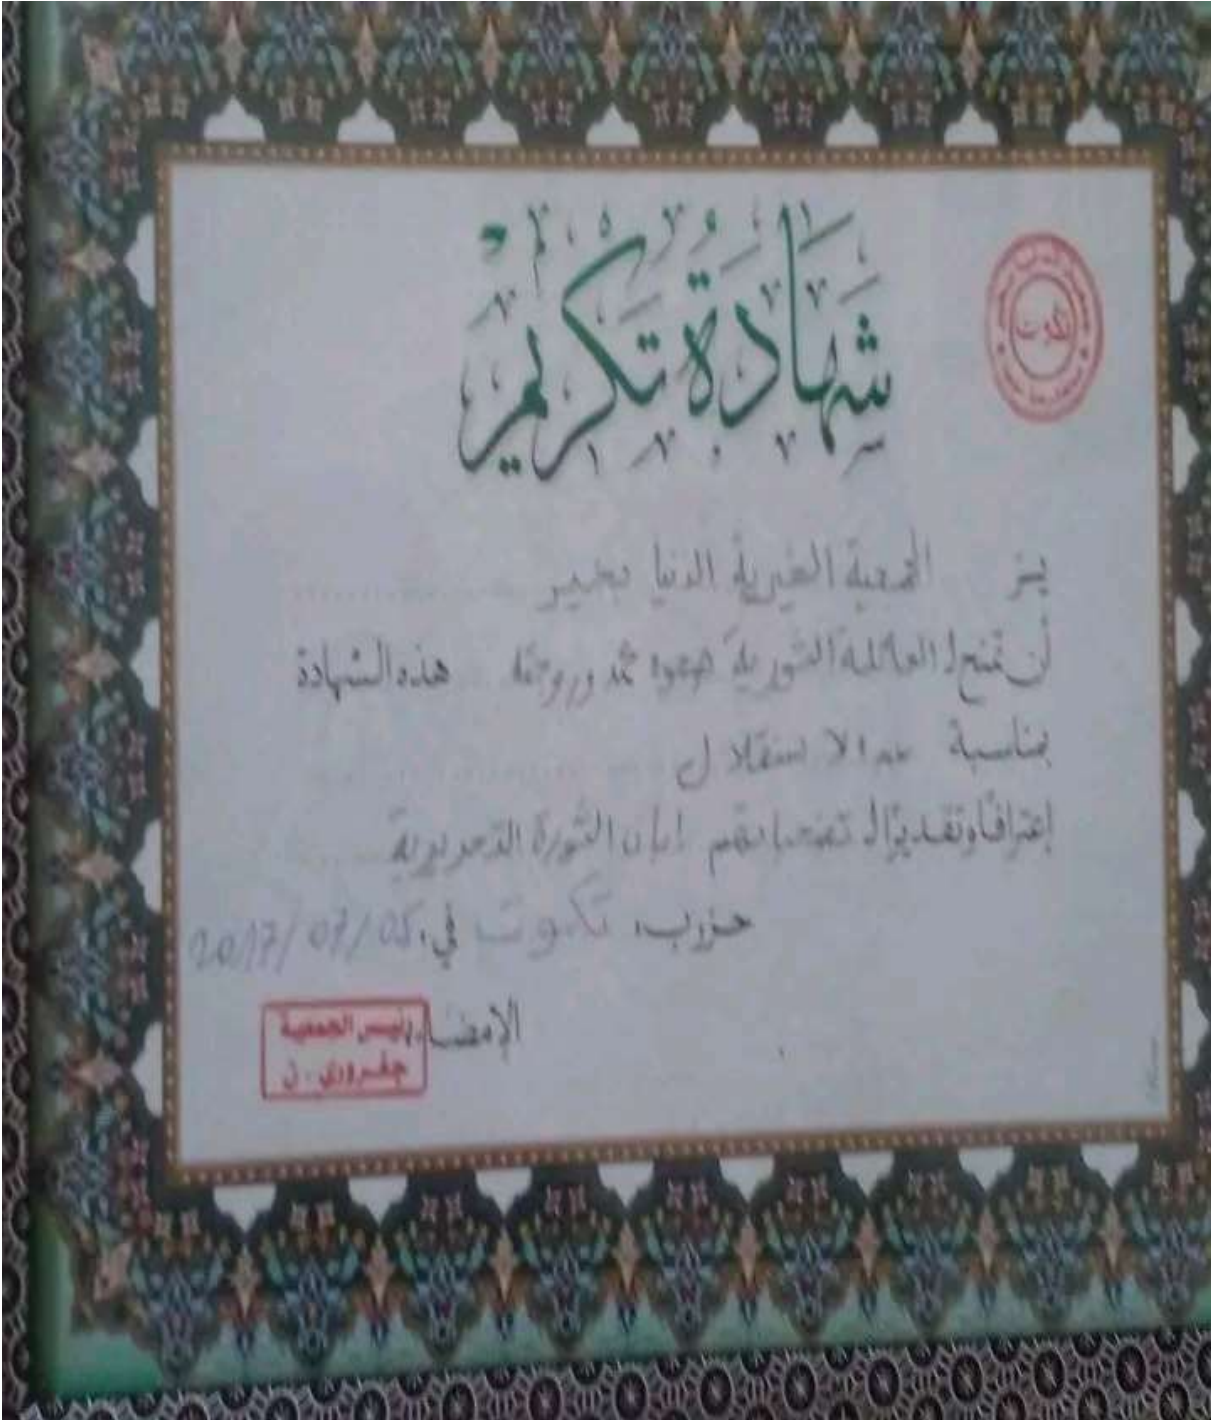 شهادة تكريم
تكوت
يسر الجمعية الخيرية الدنيا بخير
أن تمنح لـ العائلة الثورية وزوجته هذه الشهادة
بمناسبة عيد الاستقلال
إعترافا وتقديرا لـ تضحياتهم إبان الثورة التحريرية
حرر بـ: تكوت في: 2017/07/05
الإمضاء
رئيس الجمعية
جغروري . ن